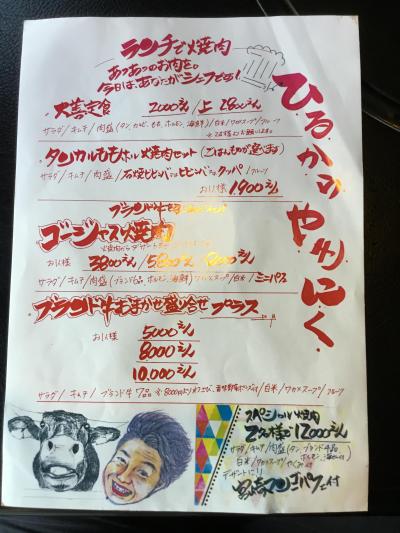 ランチで焼肉
あつあつのお肉を。
今日は、あなたがシェフです!
ひるから やきにく
大善定食 2000えん/上 2800えん
サラダ/キムチ/肉盛(タン、カルビ、もも、ホルモン、海鮮)/白米/ワカメスープ/フルーツ
※2名様よりお願いします。
タンカルももホル焼肉セット(ごはんものが選べます)
サラダ/キムチ/肉盛/石焼ビビンバorビビンバorクッパ/フルーツ
お1人様 1,900えん
ゴージャス焼肉
お1人様 3800えん/5800えん/
サラダ/キムチ/肉盛(ブランド6品、ホルモン、海鮮)/ワカメスープ/白米/ミニパフェ
ブランド牛おまかせ盛り合せ プラス
お1人様 5000えん
8000えん
10,000えん
サラダ/キムチ/ブランド牛7品 /白米/ワカメスープ/フルーツ
スペシャル焼肉
2名様で12000えん
サラダ/キムチ/肉盛(タン、ブランド4品
ホルモン、海鮮)
白米/ワカメスープ/
デザートに!!
宮崎マンゴパフェ付